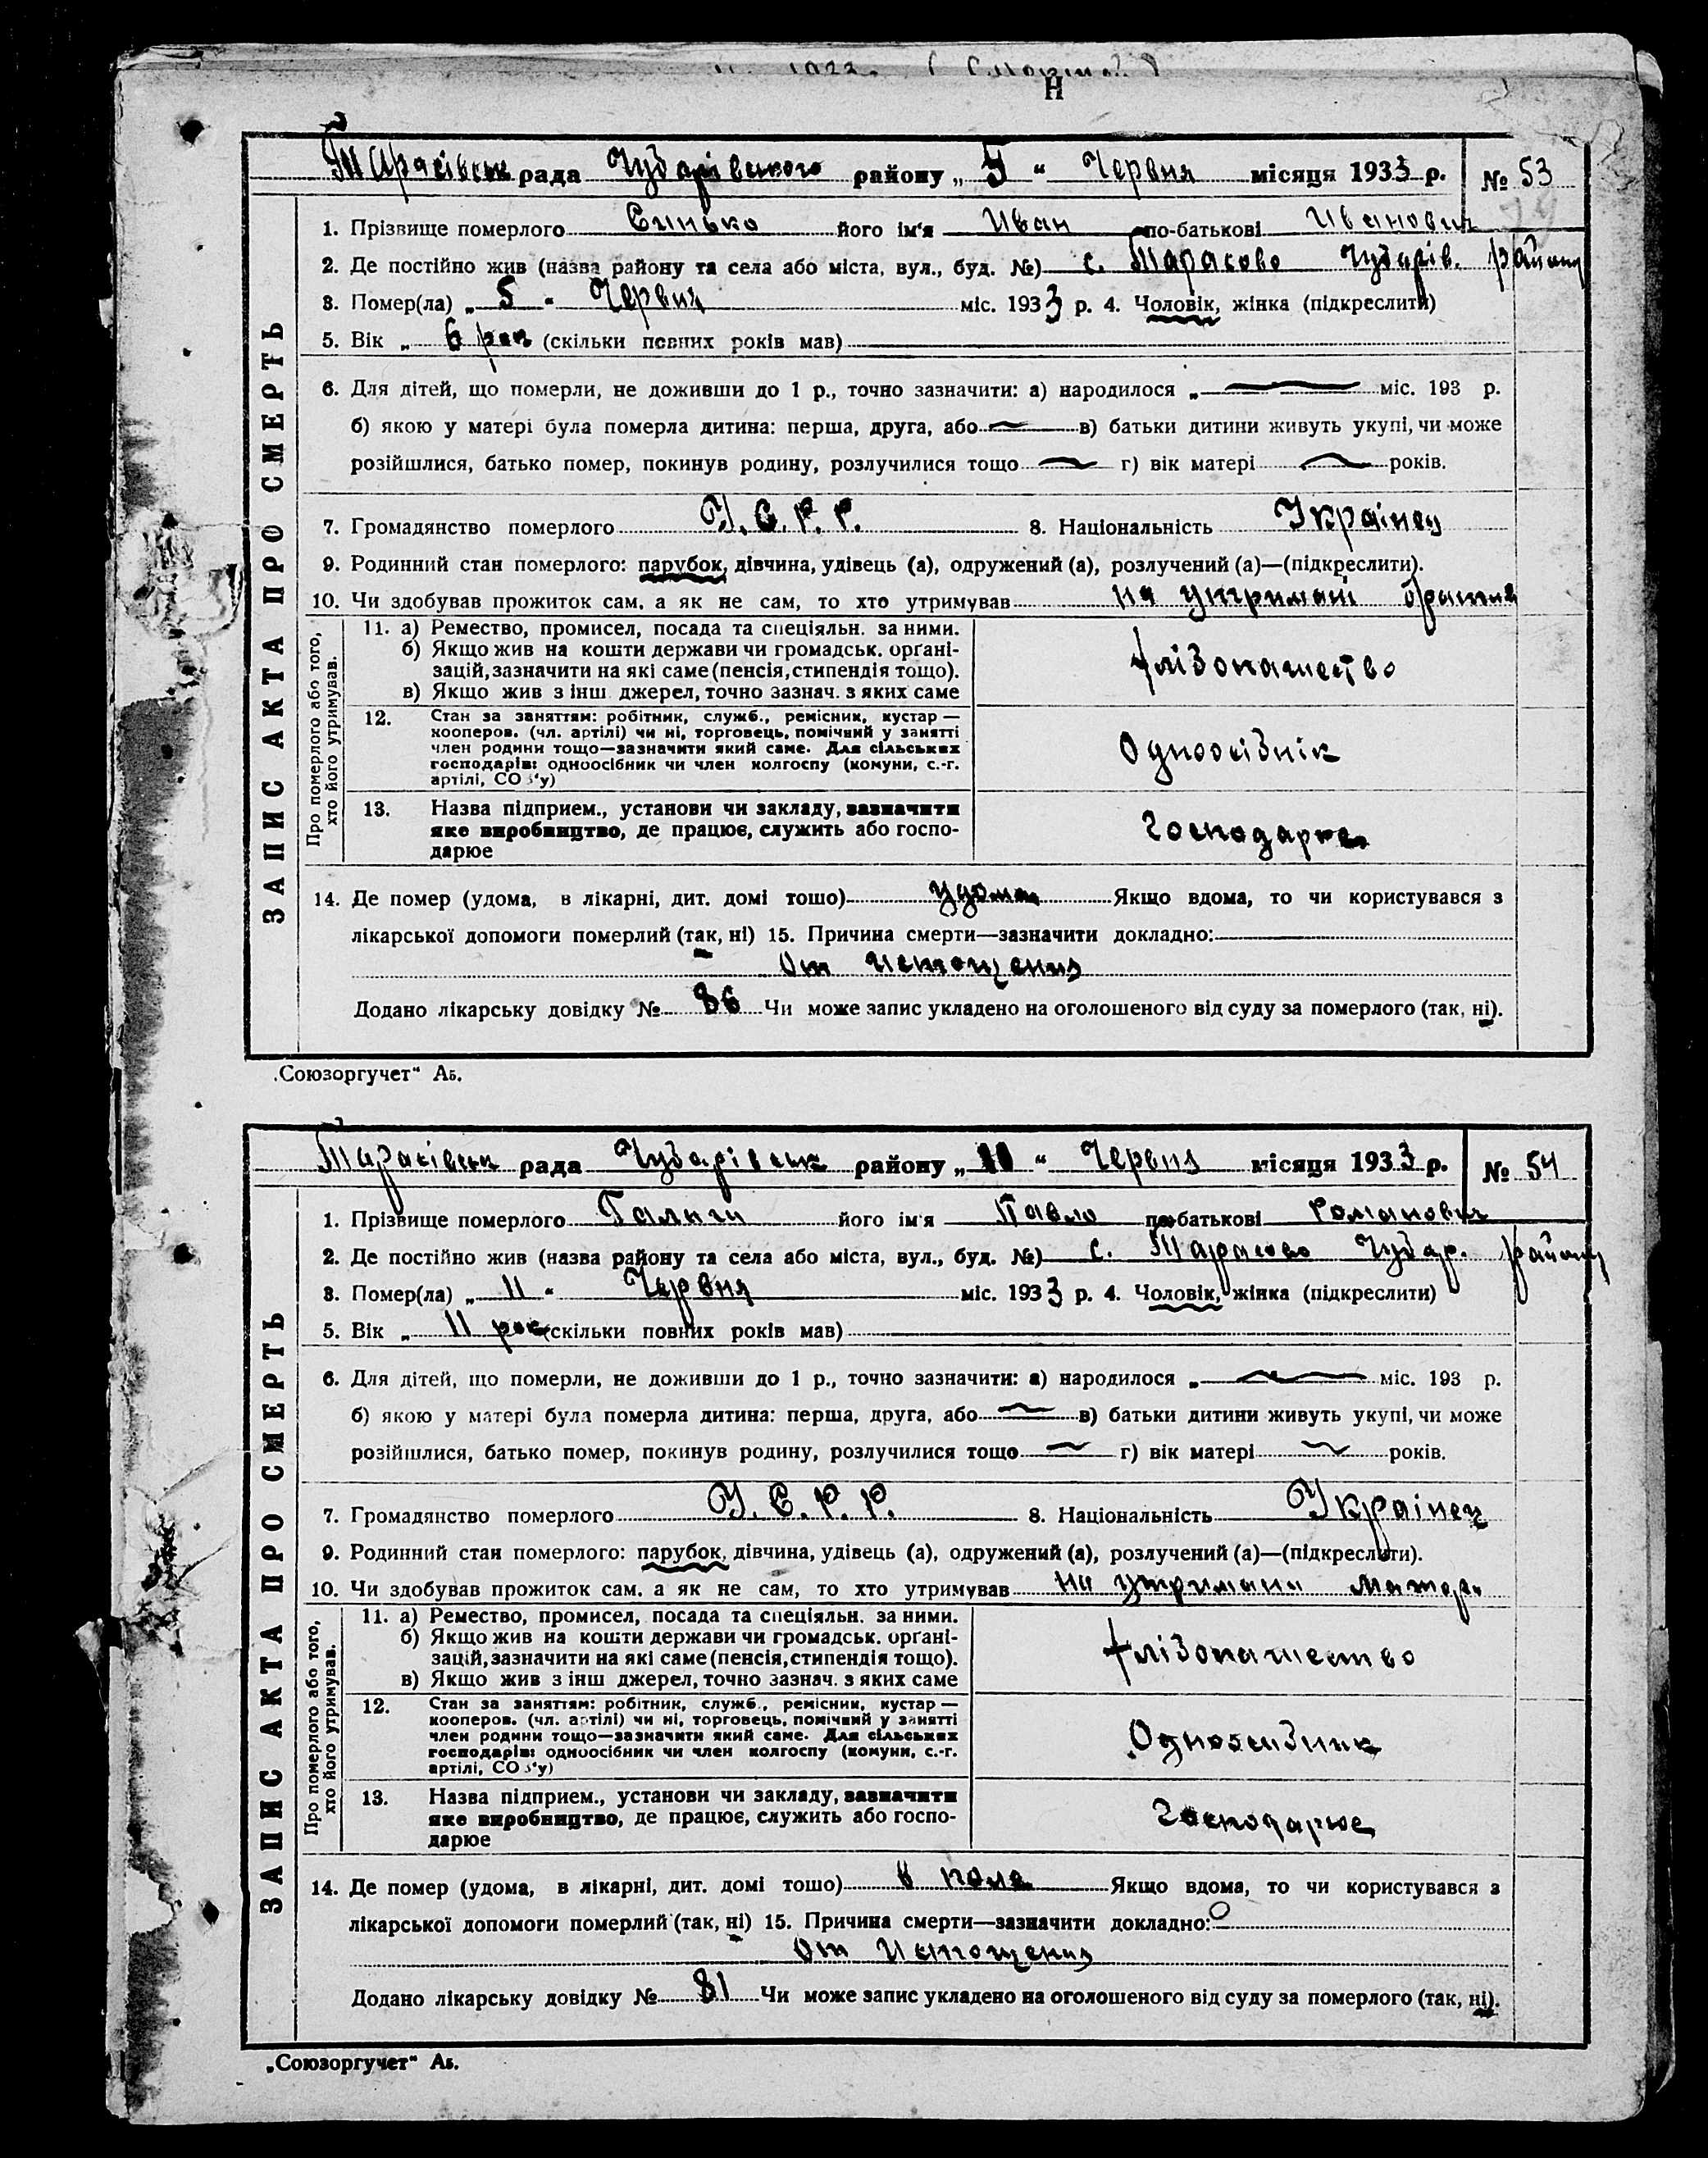 Н
Тарасівськ рада Чубарівського району „ 5 “ Червня місяця 1933 р. № 53
1. Прізвище померлого Синько його ім'я Иван по-батькові Иванович
2. Де постійно жив (назва району та села або міста, вул., буд. №) с. Тарасово Чубарів. району
3. Помер(ла) „ 5 “ Червня міс. 1933 р. 4. Чоловік, жінка (підкреслити)
5. Вік „ 6 рок (скільки повних років мав)
6. Для дітей, що померли, не доживши до 1 р., точно зазначити: а) народилося „ міс. 193 р.
б) якою у матері була померла дитина: перша, друга, або в) батьки дитини живуть укупі, чи може
розійшлися, батько помер, покинув родину, розлучилися тощо г) вік матері років.
7. Громадянство померлого У.С.Р.Р. 8. Національність Украінец
9. Родинний стан померлого: парубок, дівчина, удівець (а), одружений (а), розлучений (а)—(підкреслити).
10. Чи здобував прожиток сам, а як не сам, то хто утримував на утримані
ЗАПИС АКТА ПРО СМЕРТЬ
Про померлого або того, хто його утримував.
11. а) Ремество, промисел, посада та спеціяльн. за ними.
б) Якщо жив на кошти держави чи громадськ. орґані-
зацій, зазначити на які саме (пенсія, стипендія тощо).
в) Якщо жив з інш джерел, точно зазнач. з яких саме
хлізопашество
12. Стан за заняттям: робітник, служб., ремісник, кустар —
кооперов. (чл. артілі) чи ні, торговець, помічний у занятті
член родини тощо—зазначити який саме. Для сільських
господарів: одноосібник чи член колгоспу (комуни, с.-г.
артілі, СО З'у)
Одноосібнік
13. Назва підприєм., установи чи закладу, зазначити
яке виробництво, де працює, служить або госпо-
дарює
Господарює
14. Де помер (удома, в лікарні, дит. домі тощо) удома Якщо вдома, то чи користувався з
лікарської допомоги померлий (так, ні) 15. Причина смерти—зазначити докладно:
От истощения
Додано лікарську довідку № 86 Чи може запис укладено на оголошеного від суду за померлого (так, ні).
„Союзоргучет“ Аб.
Тарасівськ рада Чубарівськ району „ 11 “ Червня місяця 1933 р. № 54
1. Прізвище померлого його ім'я Павло по-батькові Романович
2. Де постійно жив (назва району та села або міста, вул., буд. №) с. Тарасово Чубар. району
3. Помер(ла) „ 11 “ Червня міс. 1933 р. 4. Чоловік, жінка (підкреслити)
5. Вік „ 11 рок (скільки повних років мав)
6. Для дітей, що померли, не доживши до 1 р., точно зазначити: а) народилося „ міс. 193 р.
б) якою у матері була померла дитина: перша, друга, або в) батьки дитини живуть укупі, чи може
розійшлися, батько помер, покинув родину, розлучилися тощо г) вік матері років.
7. Громадянство померлого У.С.Р.Р. 8. Національність Украінец
9. Родинний стан померлого: парубок, дівчина, удівець (а), одружений (а), розлучений (а)—(підкреслити).
10. Чи здобував прожиток сам, а як не сам, то хто утримував на утримани матери
ЗАПИС АКТА ПРО СМЕРТЬ
Про померлого або того, хто його утримував.
11. а) Ремество, промисел, посада та спеціяльн. за ними.
б) Якщо жив на кошти держави чи громадськ. орґані-
зацій, зазначити на які саме (пенсія, стипендія тощо).
в) Якщо жив з інш джерел, точно зазнач. з яких саме
хлізопашество
12. Стан за заняттям: робітник, служб., ремісник, кустар —
кооперов. (чл. артілі) чи ні, торговець, помічний у занятті
член родини тощо—зазначити який саме. Для сільських
господарів: одноосібник чи член колгоспу (комуни, с.-г.
артілі, СО З'у)
Одноосибник
13. Назва підприєм., установи чи закладу, зазначити
яке виробництво, де працює, служить або госпо-
дарює
Господарює
14. Де помер (удома, в лікарні, дит. домі тощо) в поле Якщо вдома, то чи користувався з
лікарської допомоги померлий (так, ні) 15. Причина смерти—зазначити докладно:
От Истощения
Додано лікарську довідку № 81 Чи може запис укладено на оголошеного від суду за померлого (так, ні).
„Союзоргучет“ Аб.